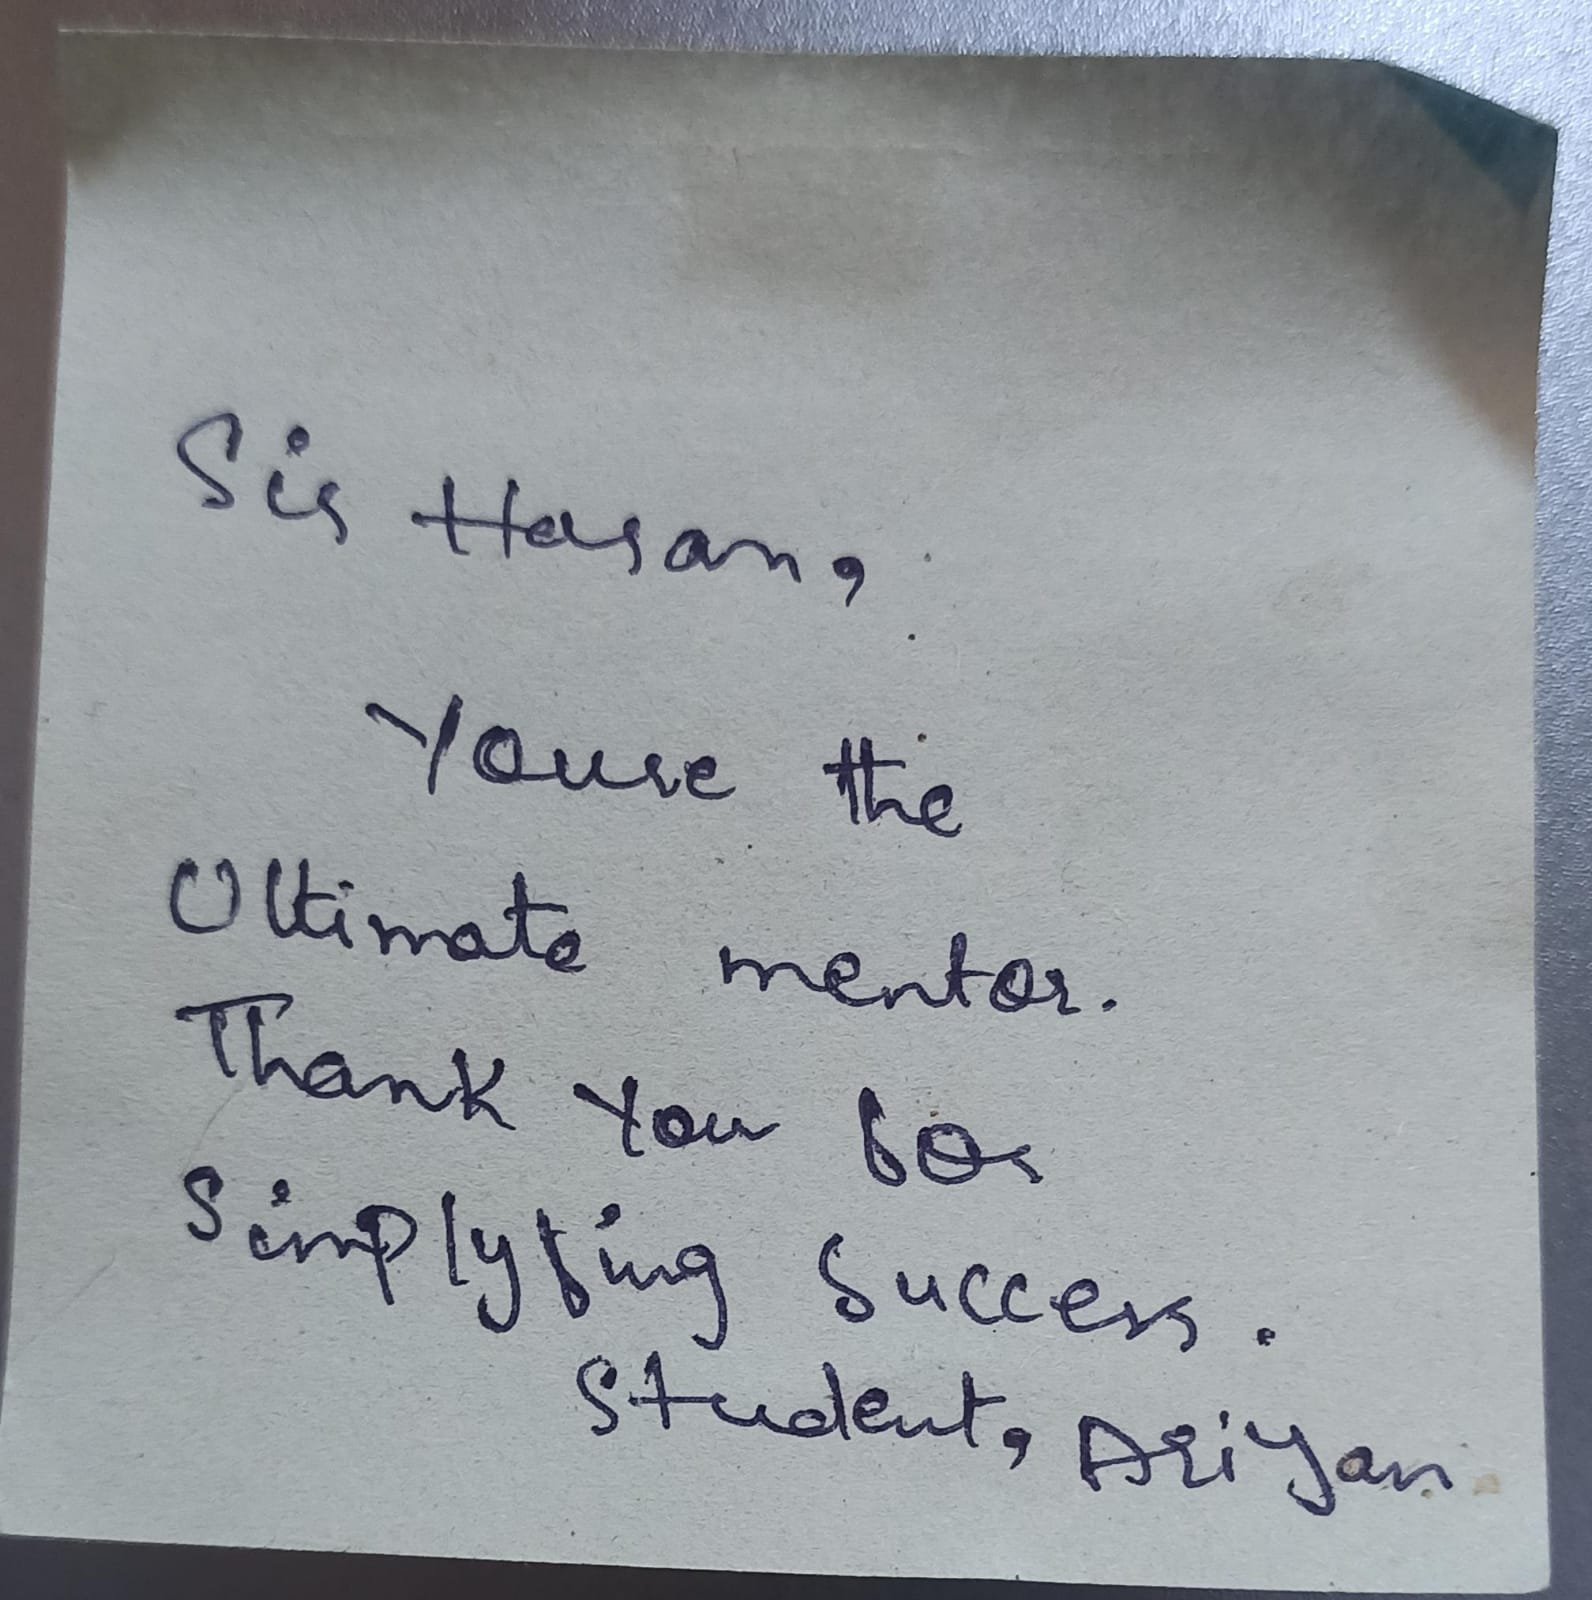 Sir Hasan,
Youre the
Ultimate mentor.
Thank You for
Simplyfing Success.
Student, Ariyan